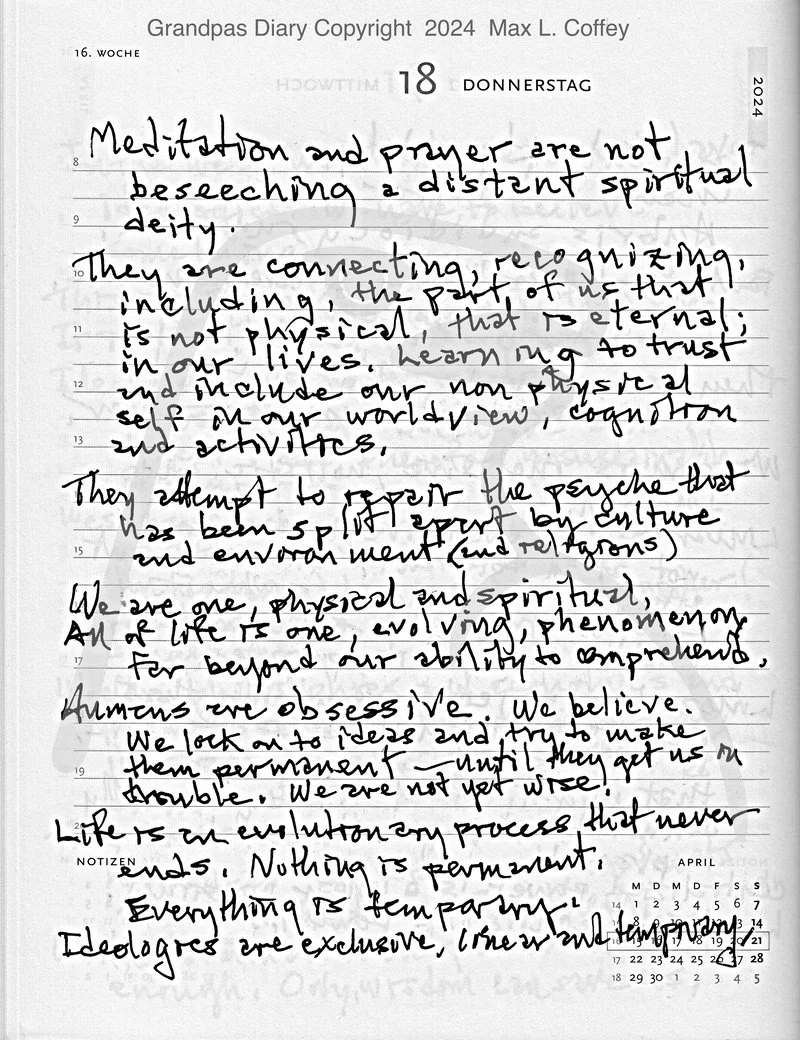 Grandpas Diary Copyright 2024 Max L. Coffey
16. WOCHE
18 DONNERSTAG
2024
Meditation and prayer are not
8
beseeching a distant spiritual
9
deity.
10 They are connecting, recognizing,
including, the part of us that
11
is not physical, that is eternal;
in our lives. Learning to trust
12
and include our non physical
self in our worldview, cognition
13
and activities.
They attempt to repair the psyche that
has been split apart by culture
15
and environment (and religions)
We are one, physical and spiritual,
All of life is one, evolving, phenomenon
17
far beyond our ability to comprehend.
Humans are obsessive. We believe.
We lock on to ideas and try to make
19
them permanent — until they get us in
trouble. We are not yet wise.
Life is an evolutionary process that never
NOTIZEN
ends. Nothing is permanent.
Everything is temporary.
Ideologies are exclusive, linear and temporary.
APRIL
M D M D F S S
14 1 2 3 4 5 6 7
15 8 9 10 11 12 13 14
16 15 16 17 18 19 20 21
17 22 23 24 25 26 27 28
18 29 30 1 2 3 4 5